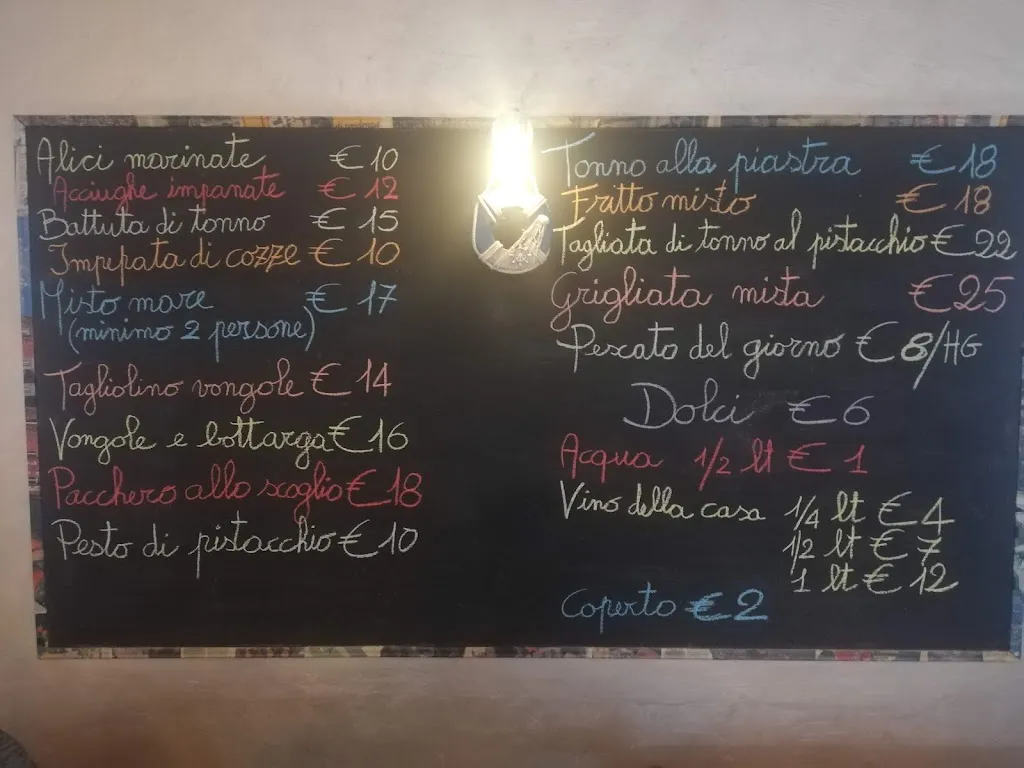 Alici marinate € 10
Acciughe impanate € 12
Battuta di tonno € 15
Impepata di cozze € 10
Misto mare € 17
(minimo 2 persone)
Tagliolino vongole € 14
Vongole e bottarga € 16
Pacchero allo scoglio € 18
Pesto di pistacchio € 10
Tonno alla piastra € 18
Fritto misto € 18
Tagliata di tonno al pistacchio € 22
Grigliata mista € 25
Pescato del giorno € 8/HG
Dolci € 6
Acqua 1/2 lt € 1
Vino della casa 1/4 lt € 4
1/2 lt € 7
1 lt € 12
Coperto € 2